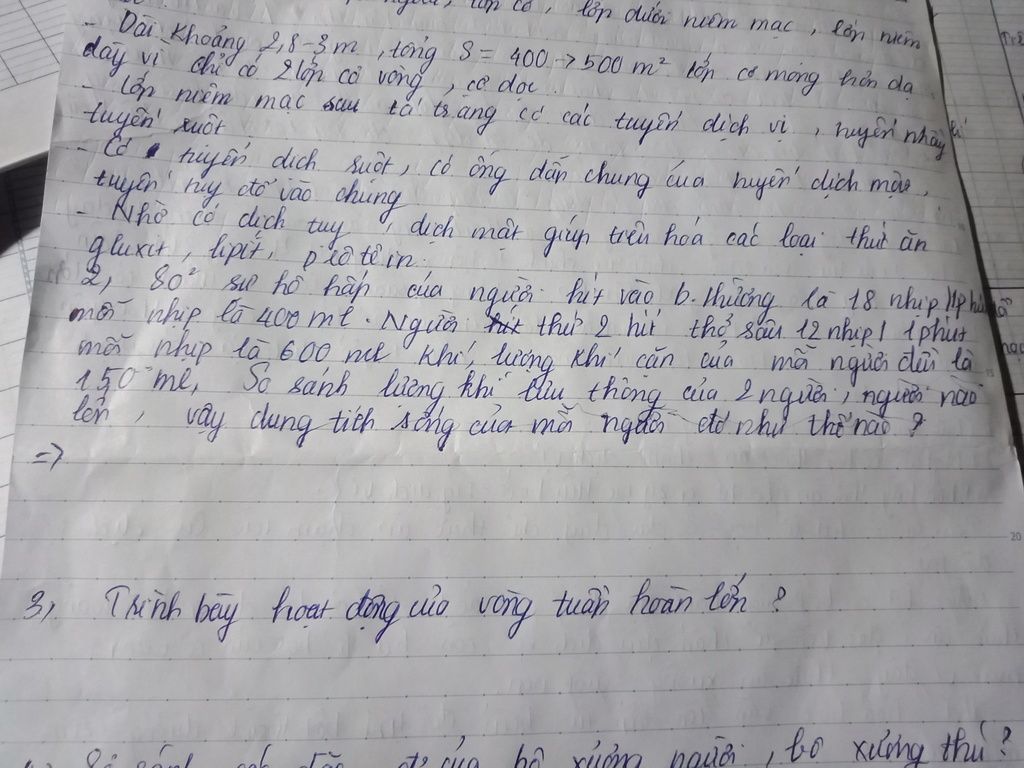 lớp cơ, lớp dưới niêm mạc, lớp niêm
- Dài khoảng 2,8-3m, tổng S = 400->500 m² lớp cơ mỏng hơn dạ
dày vì chỉ có 2 lớp cơ vòng, cơ dọc.
- Lớp niêm mạc sau tá tràng có các tuyến dịch vị, tuyến nhầy
tuyến ruột
- Có tuyến dịch ruột, có ống dẫn chung của tuyến dịch mật,
tuyến tụy đổ vào chúng
- Nhờ có dịch tụy, dịch mật giúp tiêu hóa các loại thức ăn
gluxit, lipit, protein.
2, So² sự hô hấp của người hít vào b. thường là 18 nhịp/1phút
mỗi nhịp là 400 ml. Người thứ 2 hít thở sâu 12 nhịp/1phút
mỗi nhịp là 600 ml khí, lượng khí cặn của mỗi người đều là
150 ml, So sánh lượng khí lưu thông của 2 người, người nào
lớn, vậy dung tích sống của mỗi người đó như thế nào?
=>
3, Trình bày hoạt động của vòng tuần hoàn lớn?
So sánh của bộ xương người, bộ xương thú?